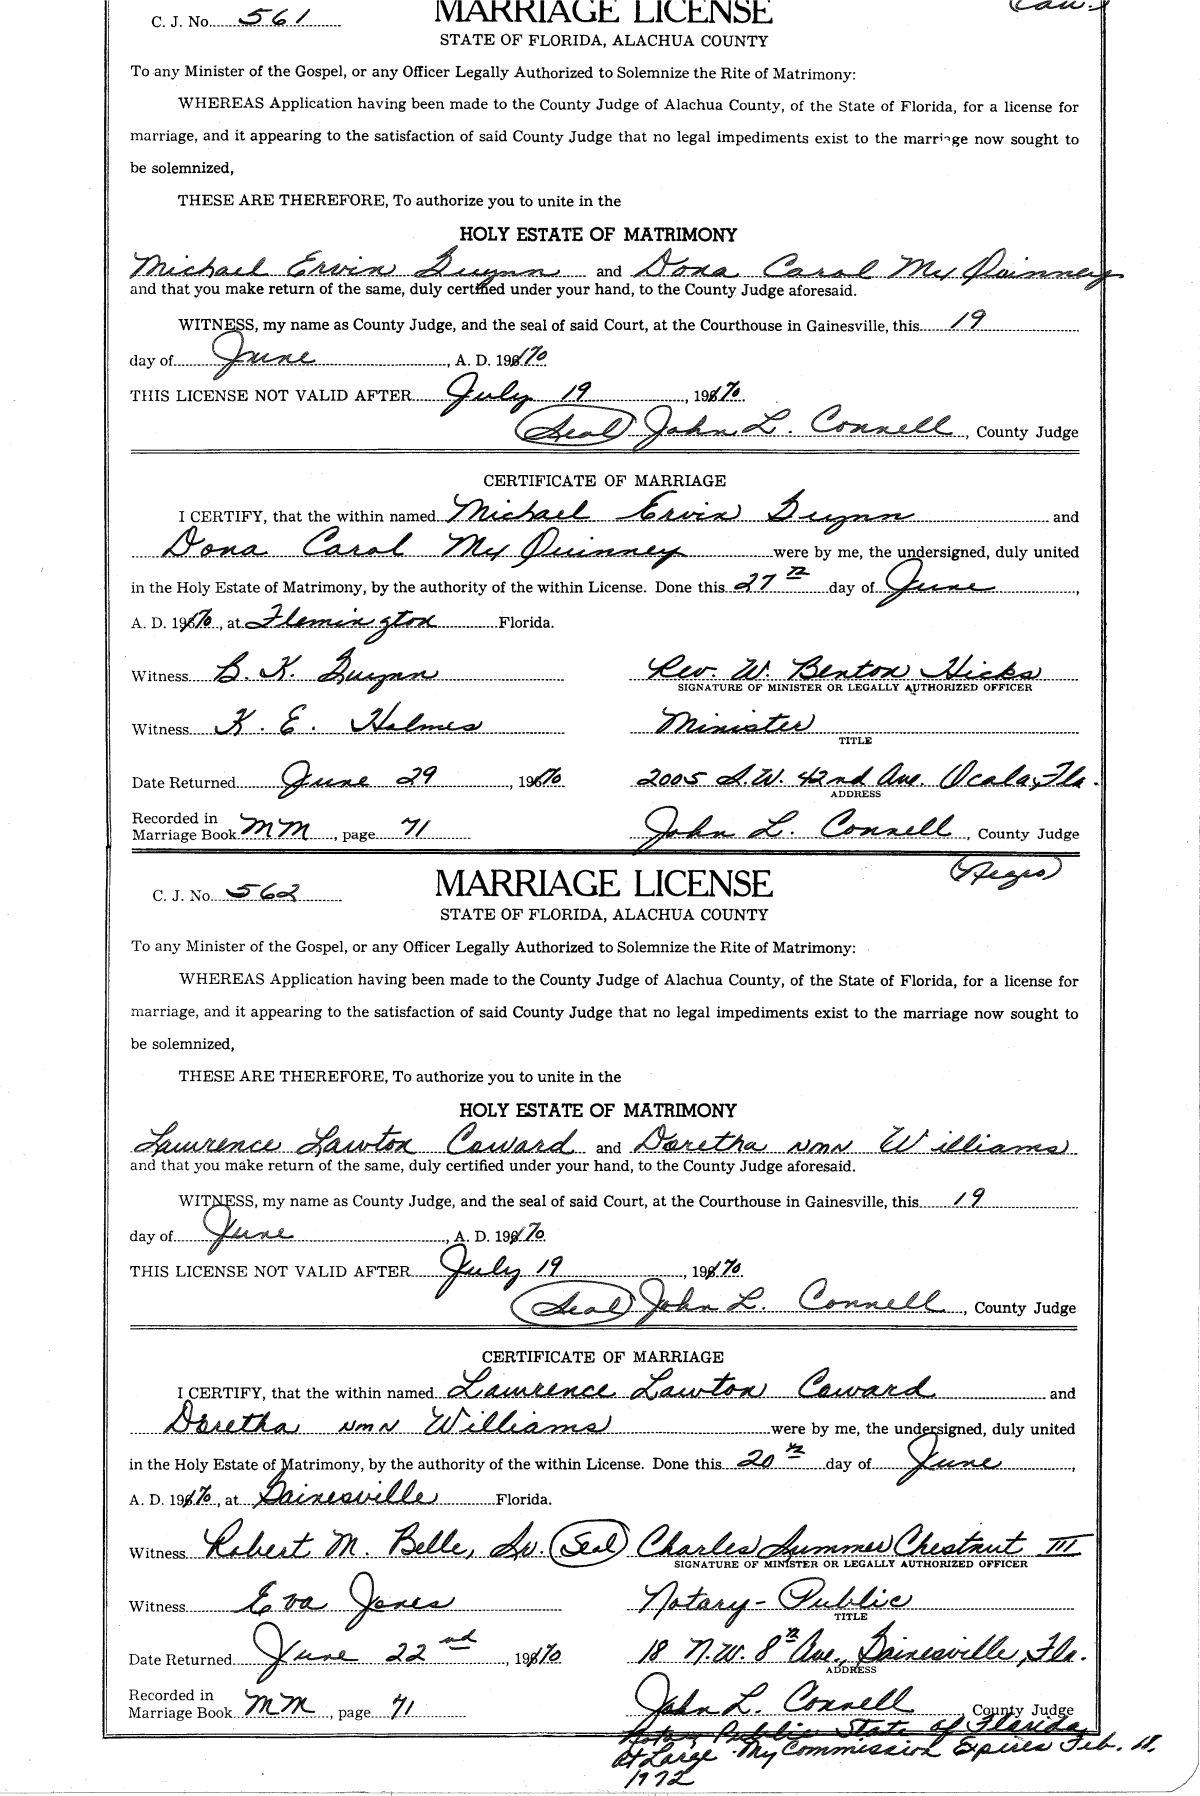 C. J. No. 561
MARRIAGE LICENSE
(Cau.)
STATE OF FLORIDA, ALACHUA COUNTY
To any Minister of the Gospel, or any Officer Legally Authorized to Solemnize the Rite of Matrimony:
WHEREAS Application having been made to the County Judge of Alachua County, of the State of Florida, for a license for
marriage, and it appearing to the satisfaction of said County Judge that no legal impediments exist to the marriage now sought to
be solemnized,
THESE ARE THEREFORE, To authorize you to unite in the
HOLY ESTATE OF MATRIMONY
Michael Ervin and Dona Carol Mc Quinney
and that you make return of the same, duly certified under your hand, to the County Judge aforesaid.
WITNESS, my name as County Judge, and the seal of said Court, at the Courthouse in Gainesville, this 19
day of June, A. D. 1970
THIS LICENSE NOT VALID AFTER July 19, 1970.
(Seal) John L. Connell, County Judge
CERTIFICATE OF MARRIAGE
I CERTIFY, that the within named Michael Ervin and
Dona Carol Mc Quinney were by me, the undersigned, duly united
in the Holy Estate of Matrimony, by the authority of the within License. Done this 27th day of June,
A. D. 1970, at Flemington Florida.
Witness B. K. Rev. W. Benton Hicks
SIGNATURE OF MINISTER OR LEGALLY AUTHORIZED OFFICER
Witness K. E. Holmes Minister
TITLE
Date Returned June 29, 1970 2005 S.W. 42nd Ave. Ocala, Fla.
ADDRESS
Recorded in
Marriage Book MM, page 71 John L. Connell, County Judge
(Negro)
C. J. No. 562
MARRIAGE LICENSE
STATE OF FLORIDA, ALACHUA COUNTY
To any Minister of the Gospel, or any Officer Legally Authorized to Solemnize the Rite of Matrimony:
WHEREAS Application having been made to the County Judge of Alachua County, of the State of Florida, for a license for
marriage, and it appearing to the satisfaction of said County Judge that no legal impediments exist to the marriage now sought to
be solemnized,
THESE ARE THEREFORE, To authorize you to unite in the
HOLY ESTATE OF MATRIMONY
Lawrence Lawton Coward and Doretha NMN Williams
and that you make return of the same, duly certified under your hand, to the County Judge aforesaid.
WITNESS, my name as County Judge, and the seal of said Court, at the Courthouse in Gainesville, this 19
day of June, A. D. 1970
THIS LICENSE NOT VALID AFTER July 19, 1970
(Seal) John L. Connell, County Judge
CERTIFICATE OF MARRIAGE
I CERTIFY, that the within named Lawrence Lawton Coward and
Doretha NMN Williams were by me, the undersigned, duly united
in the Holy Estate of Matrimony, by the authority of the within License. Done this 20th day of June,
A. D. 1970, at Gainesville Florida.
Witness Robert M. Belle, Sr. (Seal) Charles Summer Chestnut III
SIGNATURE OF MINISTER OR LEGALLY AUTHORIZED OFFICER
Witness Eva Jones Notary-Public
TITLE
Date Returned June 22nd, 1970 18 N.W. 8th Ave., Gainesville, Fla.
ADDRESS
Recorded in
Marriage Book MM, page 71 John L. Connell County Judge
Notary Public State of Florida
at Large My Commission Expires Feb. 18,
1972